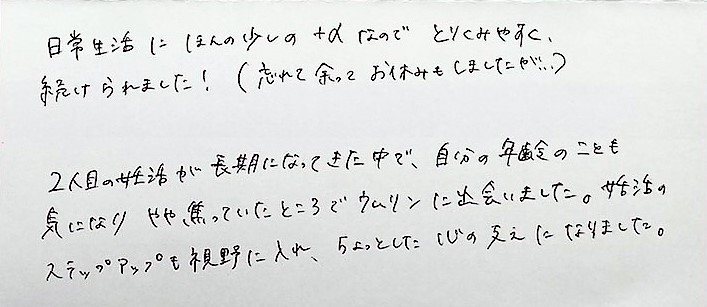 日常生活にほんの少しの+αなのでとりくみやすく、
続けられました！（忘れて余ってお休みもしましたが…）
2人目の妊活が長期になってきた中で、自分の年齢のことも
気になり やや、焦っていたところでウムリンに出会いました。妊活の
ステップアップも視野に入れ、ちょっとした心の支えになりました。